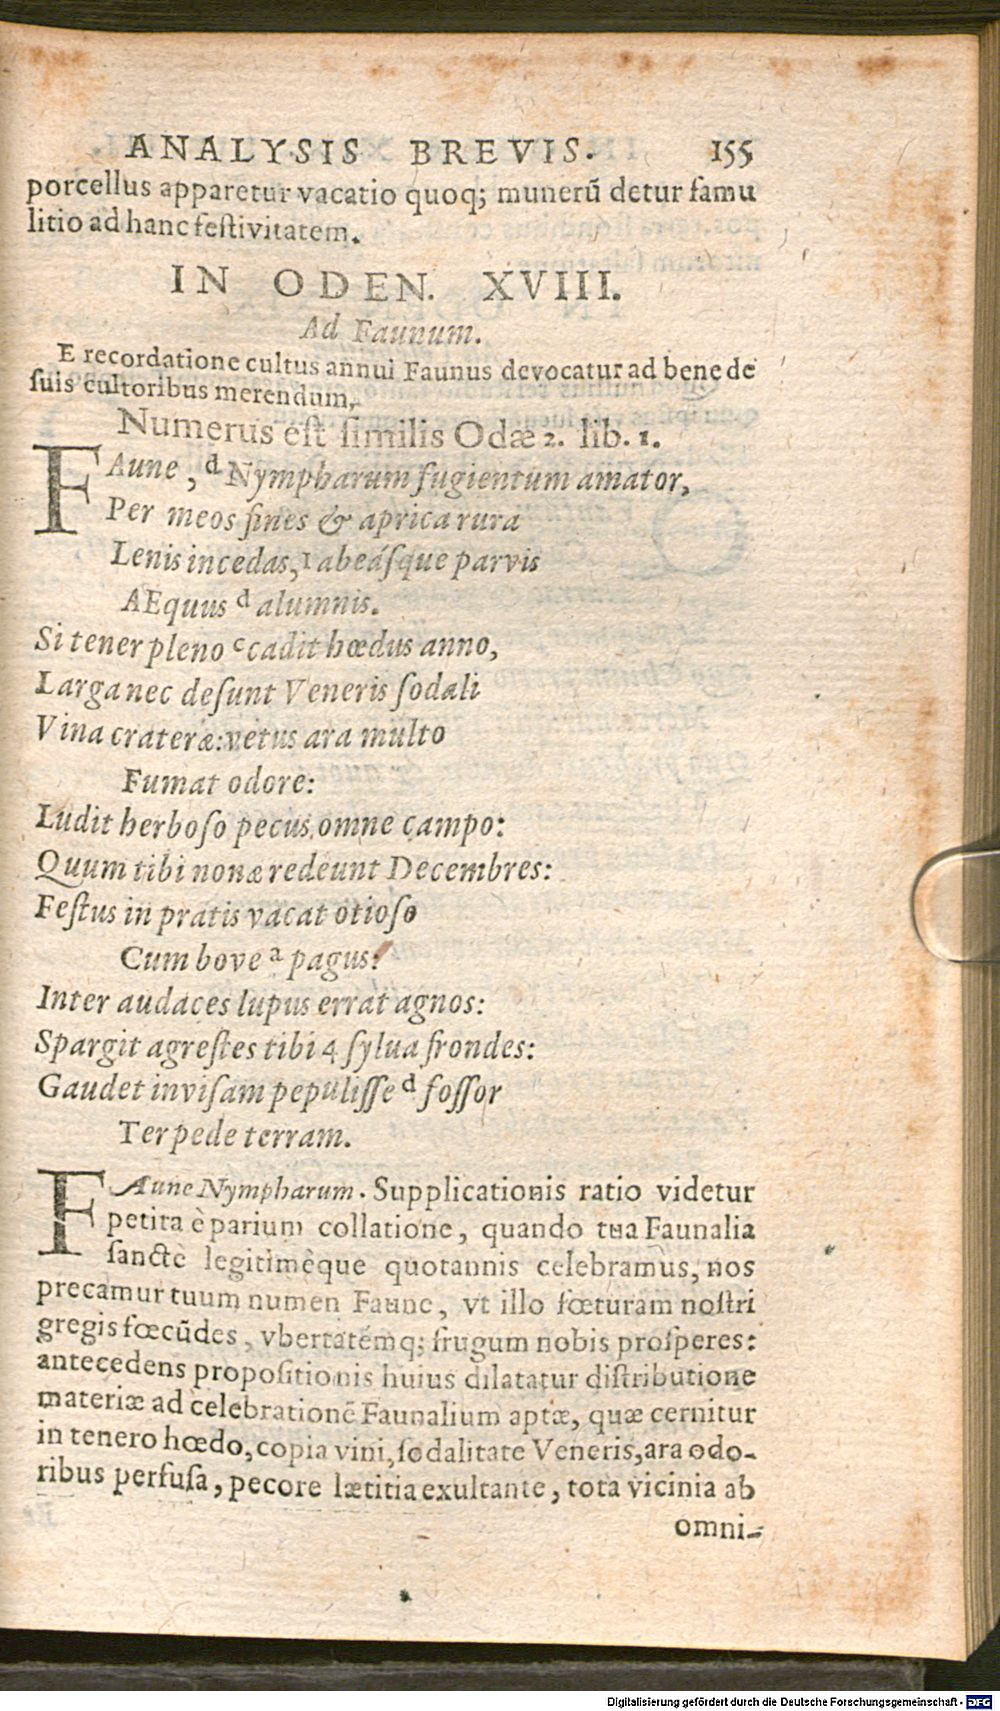 ANALYSIS BREVIS. 155
porcellus apparetur vacatio quoq; munerũ detur famu
litio ad hanc feſtivitatem.
IN ODEN. XVIII.
Ad Faunum.
E recordatione cultus annui Faunus devocatur ad bene de
ſuis cultoribus merendum,
Numerus eſt ſimilis Odæ 2. lib. 1.
FAune, d Nympharum fugientum amator,
Per meos fines & aprica rura
Lenis incedas, 1 abeáſque parvis
AEquus d alumnis.
Si tener pleno c cadit hœdus anno,
Larga nec deſunt Veneris ſodali
Vina crateræ: vetus ara multo
Fumat odore:
Ludit herboſo pecus omne campo:
Quum tibi nonæ redeunt Decembres:
Feſtus in pratis vacat otioſo
Cum bove a pagus:
Inter audaces lupus errat agnos:
Spargit agreſtes tibi 4 ſylua frondes:
Gaudet inviſam pepuliſſe d foſſor
Ter pede terram.
FAune Nympharum. Supplicationis ratio videtur
petita è parium collatione, quando tua Faunalia
ſancte legitimèque quotannis celebramus, nos
precamur tuum numen Faune, vt illo fœturam noſtri
gregis fœcũdes, vbertatémq; frugum nobis proſperes:
antecedens propoſitionis huius dilatatur diſtributione
materiæ ad celebrationẽ Faunalium aptæ, quæ cernitur
in tenero hœdo, copia vini, ſodalitate Veneris, ara odo-
ribus perfuſa, pecore lætitia exultante, tota vicinia ab
omni-
Digitalisierung gefördert durch die Deutsche Forschungsgemeinschaft - DFG